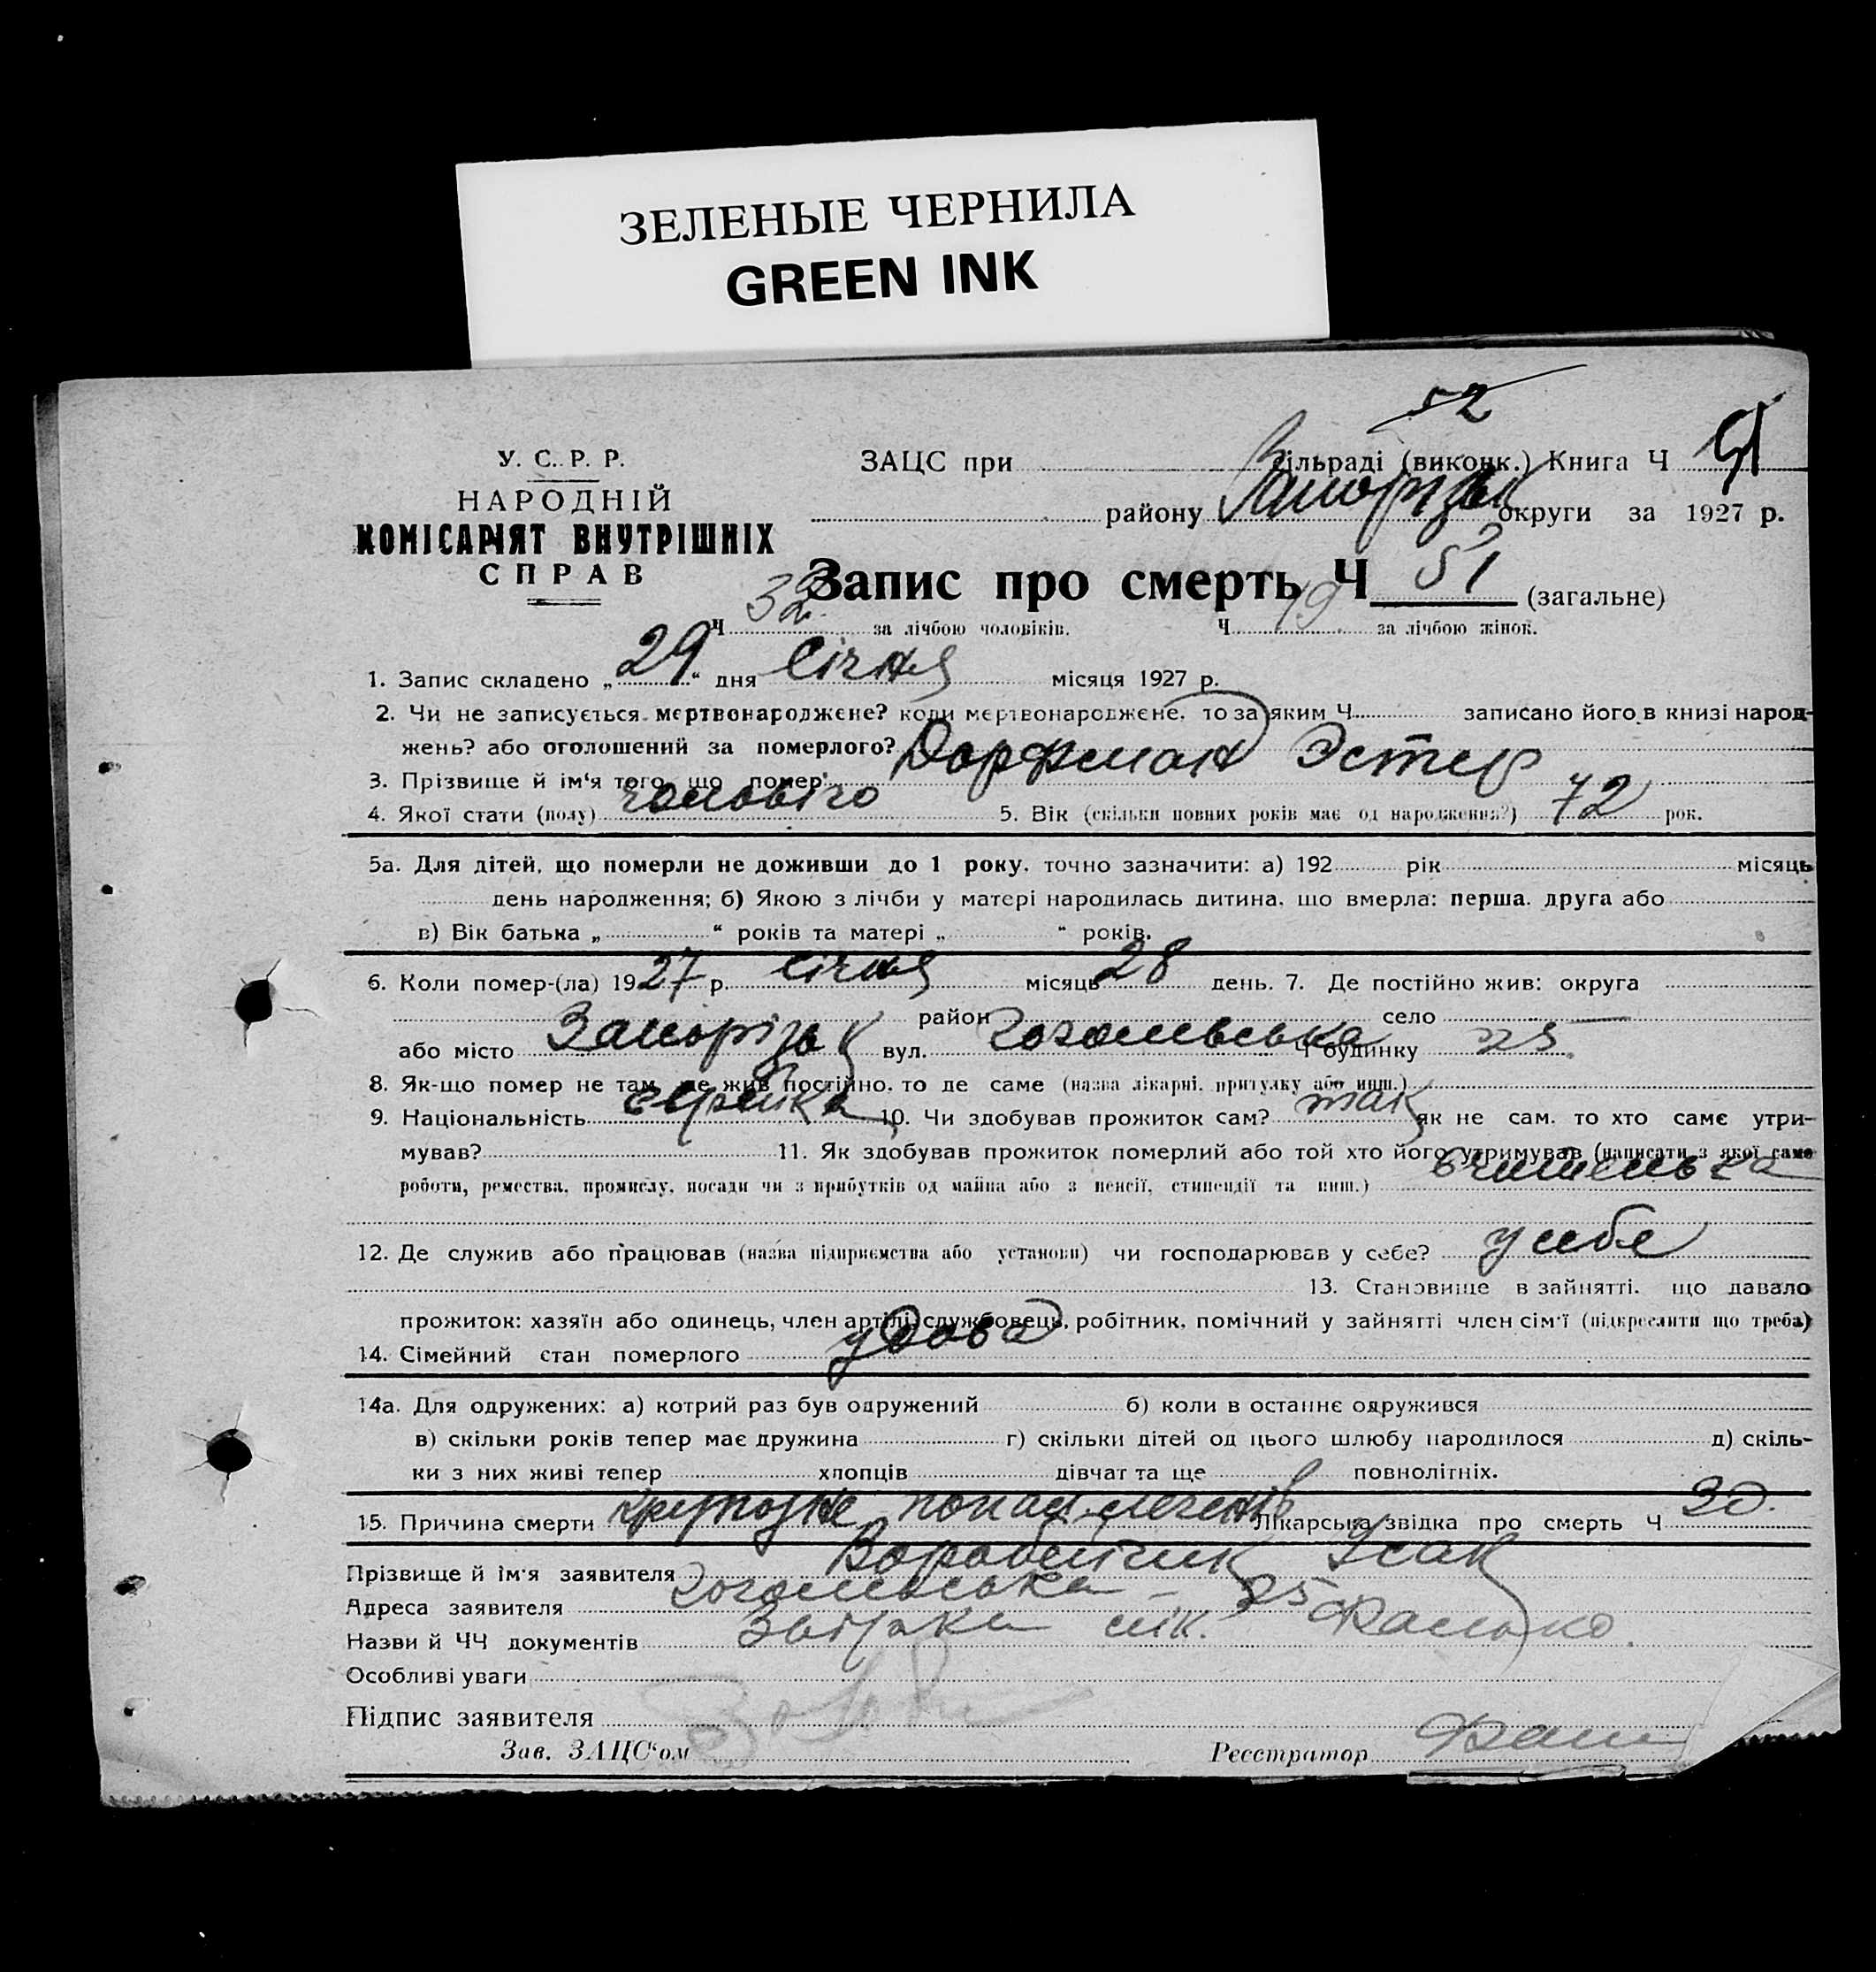 ЗЕЛЕНЫЕ ЧЕРНИЛА
GREEN INK
52
У. С. Р. Р.
НАРОДНІЙ
КОМІСАРІЯТ ВНУТРІШНІХ
СПРАВ
ЗАЦС при сільраді (виконк.) Книга Ч
району Запорізьк округи за 1927 р.
Запис про смерть Ч 51 (загальне)
Ч 32 за лічбою чоловіків. Ч 19 за лічбою жінок.
1. Запис складено „29“ дня Січня місяця 1927 р.
2. Чи не записується мертвонароджене? коли мертвонароджене, то за яким Ч записано його в книзі народ-
жень? або оголошений за померлого?
3. Прізвище й ім'я того, що помер Дорфман Эстер
4. Якої стати (полу) чоловічо 5. Вік (скільки повних років має од народження?) 72 рок.
5а. Для дітей, що померли не доживши до 1 року, точно зазначити: а) 192 рік місяць
день народження; б) Якою з лічби у матері народилась дитина, що вмерла: перша, друга або
в) Вік батька „ “ років та матері „ “ років.
6. Коли помер-(ла) 1927 р. Січня місяць 28 день. 7. Де постійно жив: округа
район село
або місто Запоріжьк вул. Гогольвська Ч будинку 25
8. Як-що помер не там, де жив постійно, то де саме (назва лікарні, притулку або инш.)
9. Національність єврейка 10. Чи здобував прожиток сам? так як не сам, то хто саме утри-
мував? 11. Як здобував прожиток померлий або той хто його утримував (написати з якої саме
роботи, ремества, промислу, посади чи з прибутків од майна або з пенсії, стипендії та инш.) вчителька
12. Де служив або працював (назва підприємства або установи) чи господарював у себе? у себе
13. Становище в зайнятті, що давало
прожиток: хазяїн або одинець, член артілі, службовець, робітник, помічний у зайнятті член сім'ї (підкреслити що треба)
14. Сімейний стан померлого удова
14а. Для одружених: а) котрий раз був одружений б) коли в останнє одружився
в) скільки років тепер має дружина г) скільки дітей од цього шлюбу народилося д) скіль-
ки з них живі тепер хлопців дівчат та ще повнолітніх.
15. Причина смерти крупозне легенів Лікарська звідка про смерть Ч 30.
Прізвище й ім'я заявителя Воробейчик Ісак
Адреса заявителя Гогольвська - 25
Назви й ЧЧ документів Звідка лік. Фалько.
Особливі уваги
Підпис заявителя
Зав. ЗАЦС'ом Реєстратор